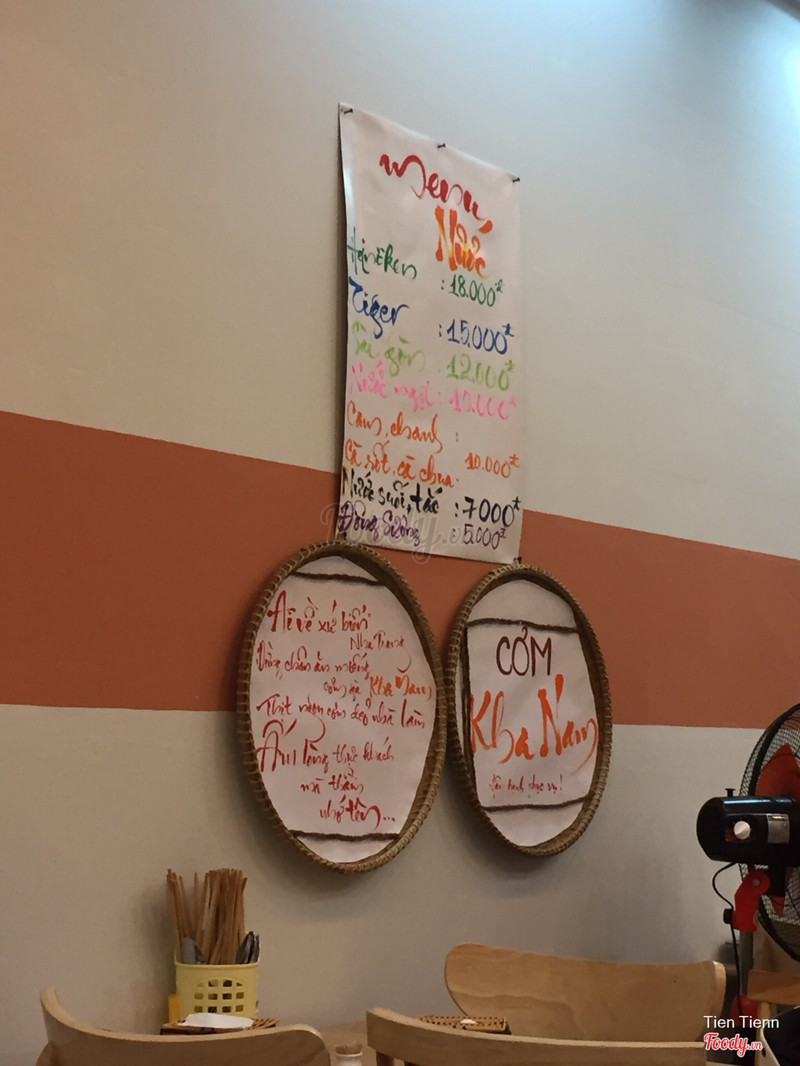 menu
Nước
Hainêken : 18.000đ
Tiger : 15.000đ
Sài gòn : 12.000đ
Nước ngọt : 10.000đ
Cam, chanh :
Cà rốt, cà chua. 10.000đ
Nước suối, tắc : 7000đ
Đông Sương : 5.000đ
Ai về xứ biển
Nha Trang
Dừng chân ăn miếng
cơm gà Kha Nam
Thịt ngon cơm dẻo nhà làm
Ấm lòng thực khách
mà thầm
nhớ tên...
CƠM
Kha Nam
hân hạnh phục vụ!
Tien Tienn
Foody.vn
Foody.vn